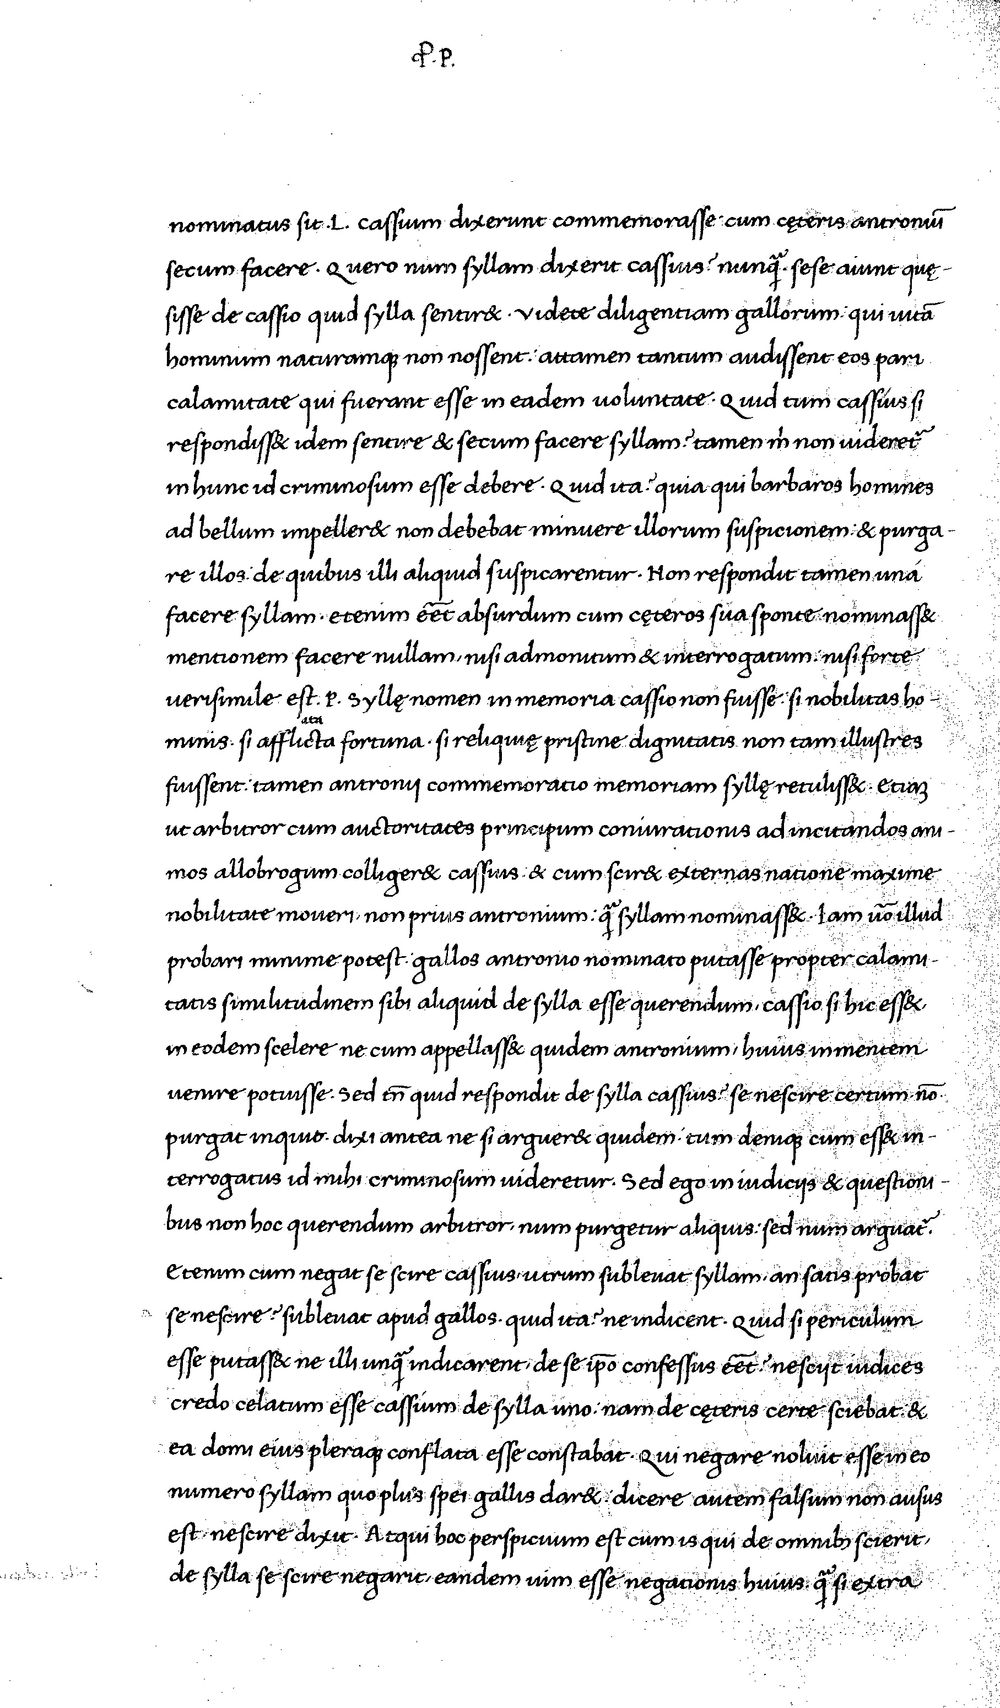 P. P.
nominatus sit .L. cassium dixerunt commemorasse: cum cęteris antroniū
secum facere. Quero num syllam dixerit cassius? nunq̄. sese aiunt quę-
sisse de cassio quid sylla sentir&. Videte diligentiam gallorum: qui uitā
hominum naturamq; non nossent: attamen tantum audissent eos pari
calamitate qui fuerant esse in eadem uoluntate. Quid tum cassius si
respondiss& idem sentire & secum facere syllam? tamen m̄ non uideret᷑
in hunc id criminosum esse debere. Quid ita? quia qui barbaros homines
ad bellum impeller& non debebat minuere illorum suspicionem: & purga-
re illos: de quibus illi aliquid suspicarentur. Non respondit tamen unā
facere syllam. etenim eēt absurdum cum cęteros sua sponte nominass&
mentionem facere nullam, nisi admonitum & interrogatum: nisi forte
uerisimile est .P. Syllę nomen in memoria cassio non fuisse: si nobilitas ho-
ata
minis. si afflicta fortuna. si reliquię pristine dignitatis non tam illustres
fuissent: tamen antronij commemoratio memoriam syllę retuliss&. Etiaʒ
ut arbitror cum auctoritates principum coniurationis ad incitandos ani-
mos allobrogum colliger& cassius & cum scir& externas natione maxime
nobilitate moueri, non prius antronium: q̄ syllam nominass&. Iam uō illud
probari minime potest: gallos antronio nominato putasse propter calami-
tatis similitudinem sibi aliquid de sylla esse querendum, cassio si hic ess&,
in eodem scelere ne cum appellass& quidem antronium, huius in mentem
uenire potuisse. Sed tn̄ quid respondit de sylla cassius? se nescire certum. nō
purgat inquit. dixi antea ne si arguer& quidem: tum deniq; cum ess& in-
terrogatus id mihi criminosum uideretur. Sed ego in iudicijs & questioni-
bus non hoc querendum arbitror, num purgetur aliquis: sed num arguat᷑.
Etenim cum negat se scire cassius, utrum subleuat syllam, an satis probat
se nescire? subleuat apud gallos. quid ita? ne indicent. Quid si periculum
esse putass& ne illi unq̄ indicarent, de se ip̄o confessus eēt? nescijt iudices
credo celatum esse cassium de sylla uno: nam de cęteris certe sciebat. &
ea domi eius pleraq; conflata esse constabat. Qui negare noluit esse in eo
numero syllam quo plus spei gallis dar&: dicere autem falsum non ausus
est, nescire dixit. Atqui hoc perspicuum est cum is qui de omnib; scierit,
de sylla se scire negarit, eandem uim esse negationis huius. q̄ si extra